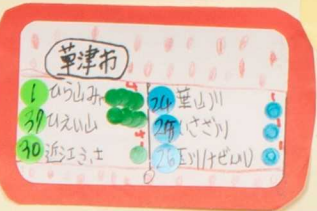 草津市
1 ひら山
37 ひえい山
30 近江ふじ
24 葉山川
25 いさざ川
26